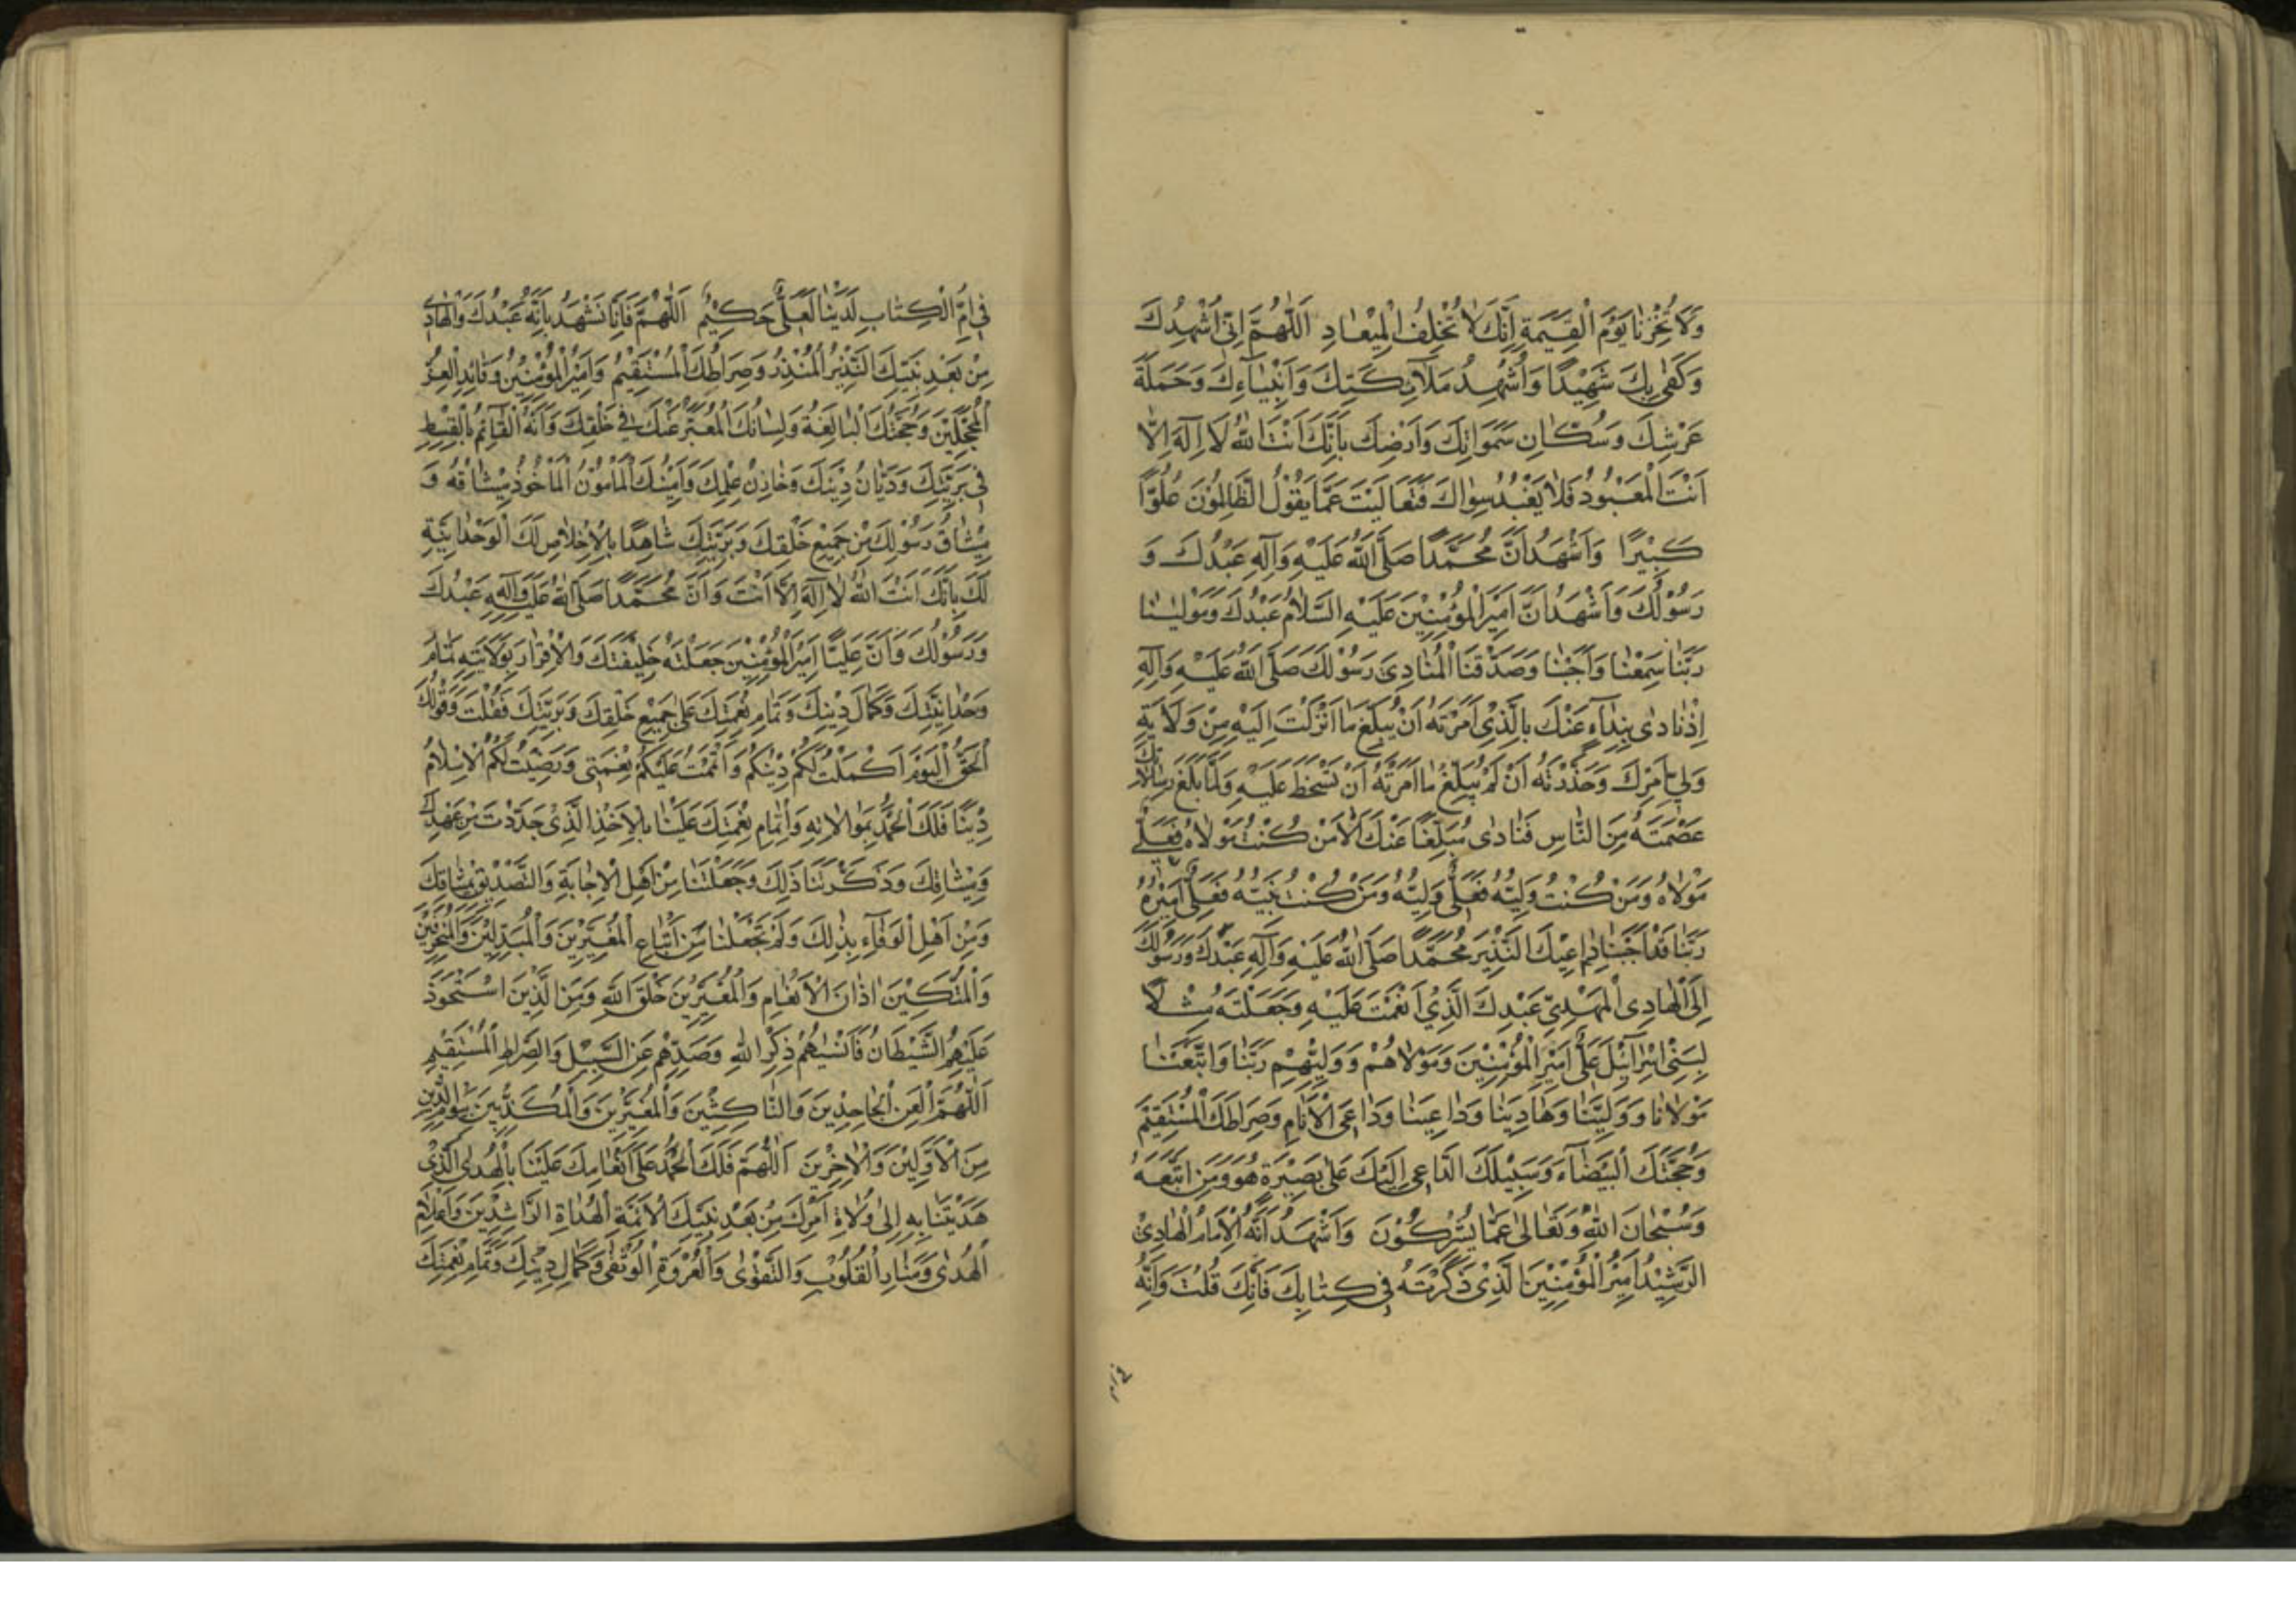 وَلَا تُخْزِنَا يَوْمَ الْقِيٰمَةِ اِنَّكَ لَا تُخْلِفُ الْمِيْعَادِ اَللّٰهُمَّ اِنّٖي اُشْهِدُكَ
وَكَفٰى بِكَ شَهِيْدًا وَاُشْهِدُ مَلَآئِكَتِكَ وَاَنْبِيَآءِكَ وَحَمَلَةَ
عَرْشِكَ وَسُكَّانِ سَمٰوَاتِكَ وَاَرْضِكَ بِاَنَّكَ اَنْتَ اللهُ لَا اِلٰهَ اِلَّا
اَنْتَ الْمَعْبُوْدُ فَلَا يُعْبَدُ سِوَاكَ فَتَعَالَيْتَ عَمَّا يَقُوْلُ الظَّالِمُوْنَ عُلُوًّا
كَبِيْرًا وَاَشْهَدُ اَنَّ مُحَمَّدًا صَلَّى اللهُ عَلَيْهِ وَاٰلِهِ عَبْدُكَ وَ
رَسُوْلُكَ وَاَشْهَدُ اَنَّ اَمِيْرَ الْمُؤْمِنِيْنَ عَلَيْهِ السَّلَامُ عَبْدُكَ وَمَوْلٰينَا
رَبَّنَا سَمِعْنَا وَاَجَبْنَا وَصَدَّقْنَا الْمُنَادِيَ رَسُوْلَكَ صَلَّى اللهُ عَلَيْهِ وَاٰلِهِ
اِذْ نَادٰى بِنِدَآءٍ عَنْكَ بِالَّذِيْ اَمَرْتَهُ اَنْ يُبَلِّغَ مَا اَنْزَلْتَ اِلَيْهِ مِنْ وَلَايَةِ
وَلِيِّ اَمْرِكَ وَحَذَّرْتَهُ اَنْ لَمْ يُبَلِّغْ مَا اَمَرْتَهُ اَنْ تَسْخَطَ عَلَيْهِ وَلَمَّا بَلَّغَ رِسَالَاتِكَ
عَصَمْتَهُ مِنَ النَّاسِ فَنَادٰى مُبَلِّغًا عَنْكَ اَلَا مَنْ كُنْتُ مَوْلَاهُ فَعَلِيٌّ
مَوْلَاهُ وَمَنْ كُنْتُ وَلِيَّهُ فَعَلِيٌّ وَلِيُّهُ وَمَنْ كُنْتُ نَبِيَّهُ فَعَلِيٌّ اَمِيْرُهُ
رَبَّنَا قَدْ اَجَبْنَا دَاعِيَكَ النَّذِيْرَ مُحَمَّدًا صَلَّى اللهُ عَلَيْهِ وَاٰلِهِ عَبْدَكَ وَرَسُوْلَكَ
اِلَى الْهَادِي الْمَهْدِيِّ عَبْدِكَ الَّذِيْ اَنْعَمْتَ عَلَيْهِ وَجَعَلْتَهُ مَثَلًا
لِبَنِيْ اِسْرَآئِيْلَ عَلِيٍّ اَمِيْرِ الْمُؤْمِنِيْنَ وَمَوْلَاهُمْ وَوَلِيِّهِمْ رَبَّنَا وَاتَّبَعْنَا
مَوْلَانَا وَوَلِيَّنَا وَهَادِيَنَا وَدَاعِيَنَا وَدَاعِيَ الْاَنَامِ وَصِرَاطَكَ الْمُسْتَقِيْمَ
وَحُجَّتَكَ الْبَيْضَآءَ وَسَبِيْلَكَ الدَّاعِيَ اِلَيْكَ عَلٰى بَصِيْرَةٍ هُوَ وَمَنِ اتَّبَعَهُ
وَسُبْحَانَ اللهِ وَتَعَالٰى عَمَّا يُشْرِكُوْنَ وَاَشْهَدُ اَنَّهُ الْاِمَامُ الْهَادِيْ
الرَّشِيْدُ اَمِيْرُ الْمُؤْمِنِيْنَ الَّذِيْ ذَكَرْتَهُ فِي كِتَابِكَ فَاِنَّكَ قُلْتَ وَاِنَّهُ
فِي اُمِّ الْكِتَابِ لَدَيْنَا لَعَلِيٌّ حَكِيْمٌ اَللّٰهُمَّ فَاِنَّا نَشْهَدُ بِاَنَّهُ عَبْدُكَ وَالْهَادِي
مِنْ بَعْدِ نَبِيِّكَ النَّذِيْرُ الْمُنْذِرُ وَصِرَاطُكَ الْمُسْتَقِيْمُ وَاَمِيْرُ الْمُؤْمِنِيْنَ وَقَائِدُ الْغُرِّ
الْمُحَجَّلِيْنَ وَحُجَّتُكَ الْبَالِغَةُ وَلِسَانُكَ الْمُعَبِّرُ عَنْكَ فِي خَلْقِكَ وَاَنَّهُ الْقَآئِمُ بِالْقِسْطِ
فِي بَرِيَّتِكَ وَدَيَّانُ دِيْنِكَ وَخَازِنُ عِلْمِكَ وَاَمِيْنُكَ الْمَأْمُوْنُ الْمَأْخُوْذُ مِيْثَاقُهُ وَ
مِيْثَاقُ رَسُوْلِكَ مِنْ جَمِيْعِ خَلْقِكَ وَبَرِيَّتِكَ شَاهِدًا بِالْاِخْلَاصِ لَكَ الْوَحْدَانِيَّةِ
لَكَ بِاَنَّكَ اَنْتَ اللهُ لَا اِلٰهَ اِلَّا اَنْتَ وَاَنَّ مُحَمَّدًا صَلَّى اللهُ عَلَيْهِ وَاٰلِهِ عَبْدُكَ
وَرَسُوْلُكَ وَاَنَّ عَلِيًّا اَمِيْرَ الْمُؤْمِنِيْنَ جَعَلْتَهُ خَلِيْفَتَكَ وَالْاِقْرَارَ بِوَلَايَتِهِ تَمَامَ
وَحْدَانِيَّتِكَ وَكَمَالَ دِيْنِكَ وَتَمَامِ نِعْمَتِكَ عَلٰى جَمِيْعِ خَلْقِكَ وَبَرِيَّتِكَ فَقُلْتَ وَقَوْلُكَ
الْحَقُّ اَلْيَوْمَ اَكْمَلْتُ لَكُمْ دِيْنَكُمْ وَاَتْمَمْتُ عَلَيْكُمْ نِعْمَتِي وَرَضِيْتُ لَكُمُ الْاِسْلَامَ
دِيْنًا فَلَكَ الْحَمْدُ بِمُوَالَاتِهِ وَاِتْمَامِ نِعْمَتِكَ عَلَيْنَا بِالْاَخْذِ الَّذِيْ جَدَّدْتَ مِنْ عَهْدِكَ
وَمِيْثَاقِكَ وَذَكَّرْتَنَا ذٰلِكَ وَجَعَلْتَنَا مِنْ اَهْلِ الْاِجَابَةِ وَالتَّصْدِيْقِ بِمِيْثَاقِكَ
وَمِنْ اَهْلِ الْوَفَآءِ بِذٰلِكَ وَلَمْ تَجْعَلْنَا مِنْ اَتْبَاعِ الْمُغَيِّرِيْنَ وَالْمُبَدِّلِيْنَ وَالْمُنْحَرِفِيْنَ
وَالْمُبَتِّكِيْنَ اٰذَانَ الْاَنْعَامِ وَالْمُغَيِّرِيْنَ خَلْقَ اللهِ وَمِنَ الَّذِيْنَ اسْتَحْوَذَ
عَلَيْهِمُ الشَّيْطَانُ فَاَنْسٰىهُمْ ذِكْرَ اللهِ وَصَدَّهُمْ عَنِ السَّبِيْلِ وَالصِّرَاطِ الْمُسْتَقِيْمِ
اَللّٰهُمَّ الْعَنِ الْجَاحِدِيْنَ وَالنَّاكِثِيْنَ وَالْمُغَيِّرِيْنَ وَالْمُكَذِّبِيْنَ بِيَوْمِ الدِّيْنِ
مِنَ الْاَوَّلِيْنَ وَالْاٰخِرِيْنَ اَللّٰهُمَّ فَلَكَ الْحَمْدُ عَلٰى اِنْعَامِكَ عَلَيْنَا بِالْهُدَى الَّذِيْ
هَدَيْتَنَا بِهِ اِلٰى وُلَاةِ اَمْرِكَ مِنْ بَعْدِ نَبِيِّكَ الْاَئِمَّةِ الْهُدَاةِ الرَّاشِدِيْنَ وَاَعْلَامِ
الْهُدٰى وَمَنَارِ الْقُلُوْبِ وَالتَّقْوٰى وَالْعُرْوَةِ الْوُثْقٰى وَكَمَالِ دِيْنِكَ وَتَمَامِ نِعْمَتِكَ